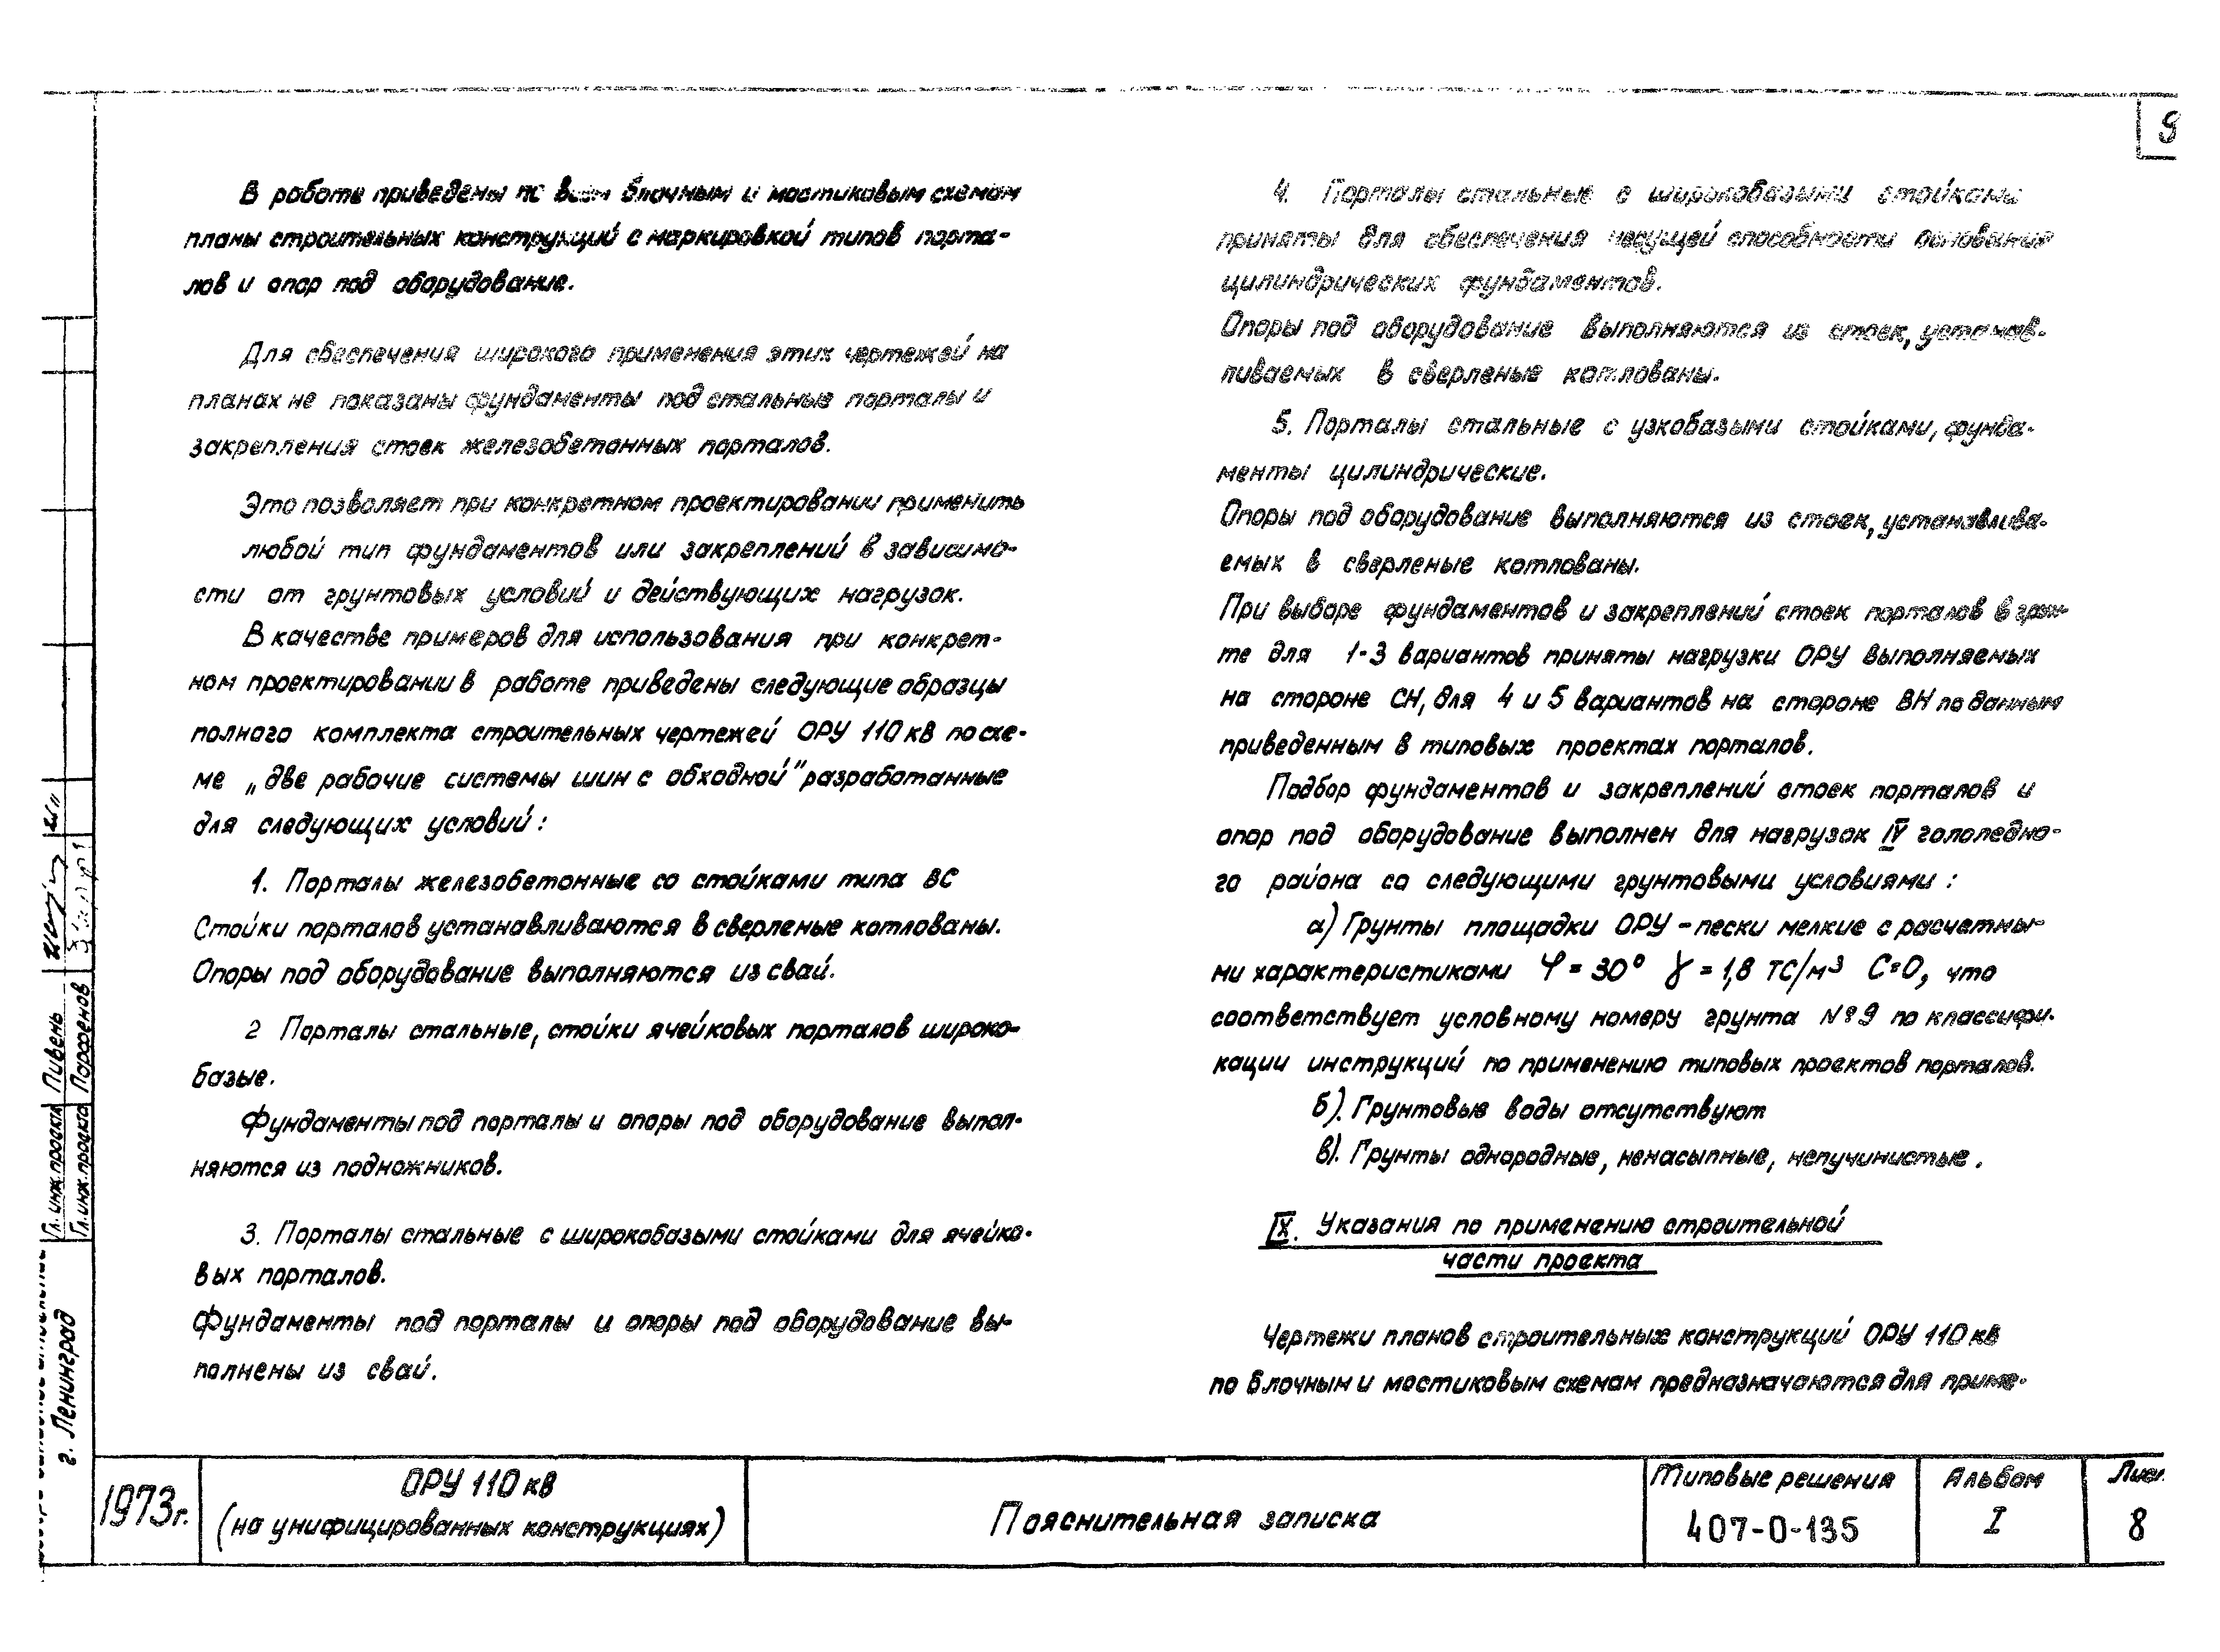 9
В работе приведены по всем блочным и мостиковым схемам
планы строительных конструкций с маркировкой типов порта-
лов и опор под оборудование.
Для обеспечения широкого применения этих чертежей на
планах не показаны фундаменты под стальные порталы и
закрепления стоек железобетонных порталов.
Это позволяет при конкретном проектировании применить
любой тип фундаментов или закреплений в зависимо-
сти от грунтовых условий и действующих нагрузок.
В качестве примеров для использования при конкрет-
ном проектировании в работе приведены следующие образцы
полного комплекта строительных чертежей ОРУ 110 кв по схе-
ме „две рабочие системы шин с обходной" разработанные
для следующих условий:
1. Порталы железобетонные со стойками типа ВС
Стойки порталов устанавливаются в сверленые котлованы.
Опоры под оборудование выполняются из свай.
2 Порталы стальные, стойки ячейковых порталов широко-
базые.
Фундаменты под порталы и опоры под оборудование выпол-
няются из подножников.
3. Порталы стальные с широкобазыми стойками для ячейко-
вых порталов.
Фундаменты под порталы и опоры под оборудование вы-
полнены из свай.
4. Порталы стальные с широкобазыми стойками
приняты для обеспечения несущей способности основания
цилиндрических фундаментов.
Опоры под оборудование выполняются из стоек, устанав-
ливаемых в сверленые котлованы.
5. Порталы стальные с узкобазыми стойками, фунда-
менты цилиндрические.
Опоры под оборудование выполняются из стоек, устанавлива-
емых в сверленые котлованы.
При выборе фундаментов и закреплений стоек порталов в грун-
те для 1-3 вариантов приняты нагрузки ОРУ выполняемых
на стороне СН, для 4 и 5 вариантов на стороне ВН по данным
приведенным в типовых проектах порталов.
Подбор фундаментов и закреплений стоек порталов и
опор под оборудование выполнен для нагрузок IV гололедно-
го района со следующими грунтовыми условиями:
а) Грунты площадки ОРУ - пески мелкие с расчетны-
ми характеристиками φ = 30° γ = 1,8 ТС/м³ С=0, что
соответствует условному номеру грунта №9 по классифи-
кации инструкций по применению типовых проектов порталов.
б). Грунтовые воды отсутствуют
в). Грунты однородные, ненасыпные, непучинистые.
IX. Указания по применению строительной
части проекта
Чертежи планов строительных конструкций ОРУ 110 кв
по блочным и мостиковым схемам предназначаются для приме-
Гл. инж. проекта Пивень
Гл. инж. проекта Парфенов
г. Ленинград
1973г.
ОРУ 110 кв
(на унифицированных конструкциях)
Пояснительная записка
Типовые решения
407-0-135
Альбом
I
Лист
8